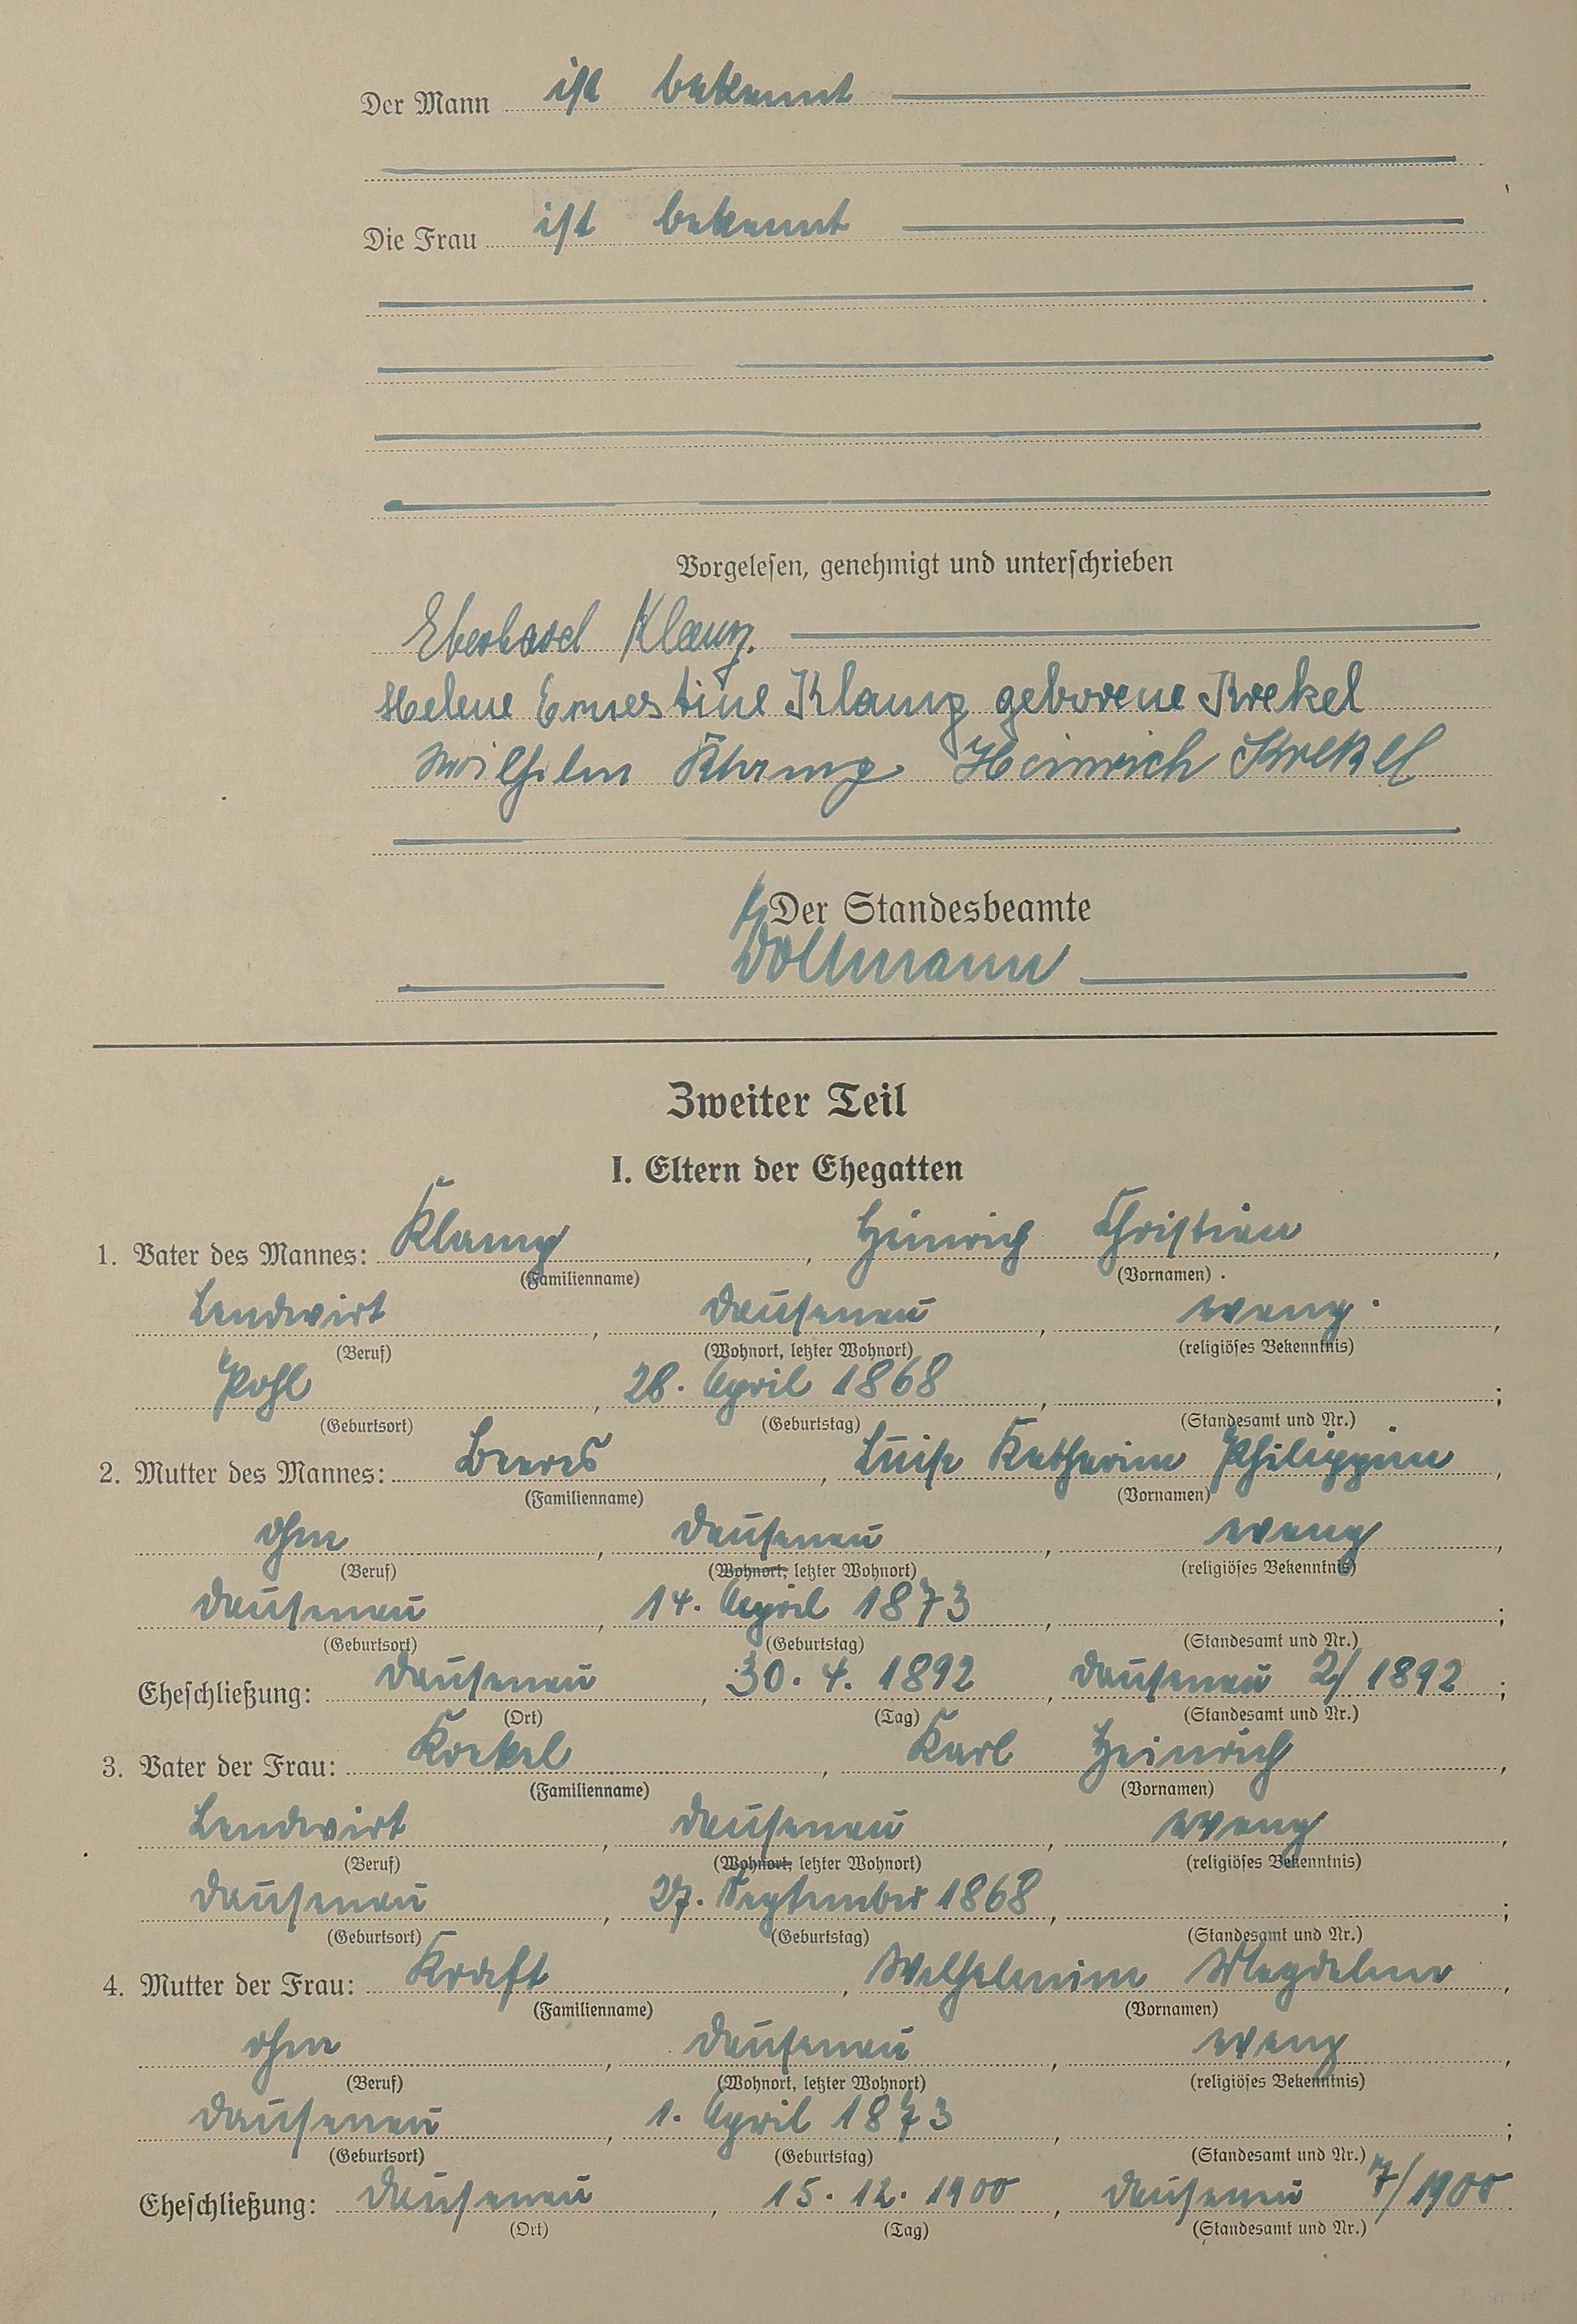 Der Mann ist bekannt
Die Frau ist bekannt
Vorgelesen, genehmigt und unterschrieben
Eberhard Klamp.
Helene Ernestine Klamp geborene Krekel
Wilhelm Klamp Heinrich Krekel
Der Standesbeamte
Zweiter Teil
I. Eltern der Ehegatten
1. Vater des Mannes: Klamp, Heinrich Christian,
(Familienname) (Vornamen)
Landwirt, Dausenau, evang.,
(Beruf) (Wohnort, letzter Wohnort) (religiöses Bekenntnis)
Pohl, 28. April 1868, ;
(Geburtsort) (Geburtstag) (Standesamt und Nr.)
2. Mutter des Mannes: , Luise Katharine Philippine,
(Familienname) (Vornamen)
ohne, Dausenau, evang,
(Beruf) (Wohnort, letzter Wohnort) (religiöses Bekenntnis)
Dausenau, 14. April 1873, ;
(Geburtsort) (Geburtstag) (Standesamt und Nr.)
Eheschließung: Dausenau, 30. 4. 1892, Dausenau 2/1892;
(Ort) (Tag) (Standesamt und Nr.)
3. Vater der Frau: Krekel, Karl Heinrich,
(Familienname) (Vornamen)
Landwirt, Dausenau, evang,
(Beruf) (Wohnort, letzter Wohnort) (religiöses Bekenntnis)
Dausenau, 27. September 1868, ;
(Geburtsort) (Geburtstag) (Standesamt und Nr.)
4. Mutter der Frau: Kraft, Wilhelmine Magdalene,
(Familienname) (Vornamen)
ohne, Dausenau, evang,
(Beruf) (Wohnort, letzter Wohnort) (religiöses Bekenntnis)
Dausenau, 1. April 1873, ;
(Geburtsort) (Geburtstag) (Standesamt und Nr.)
Eheschließung: Dausenau, 15. 12. 1900, Dausenau 7/1900.
(Ort) (Tag) (Standesamt und Nr.)